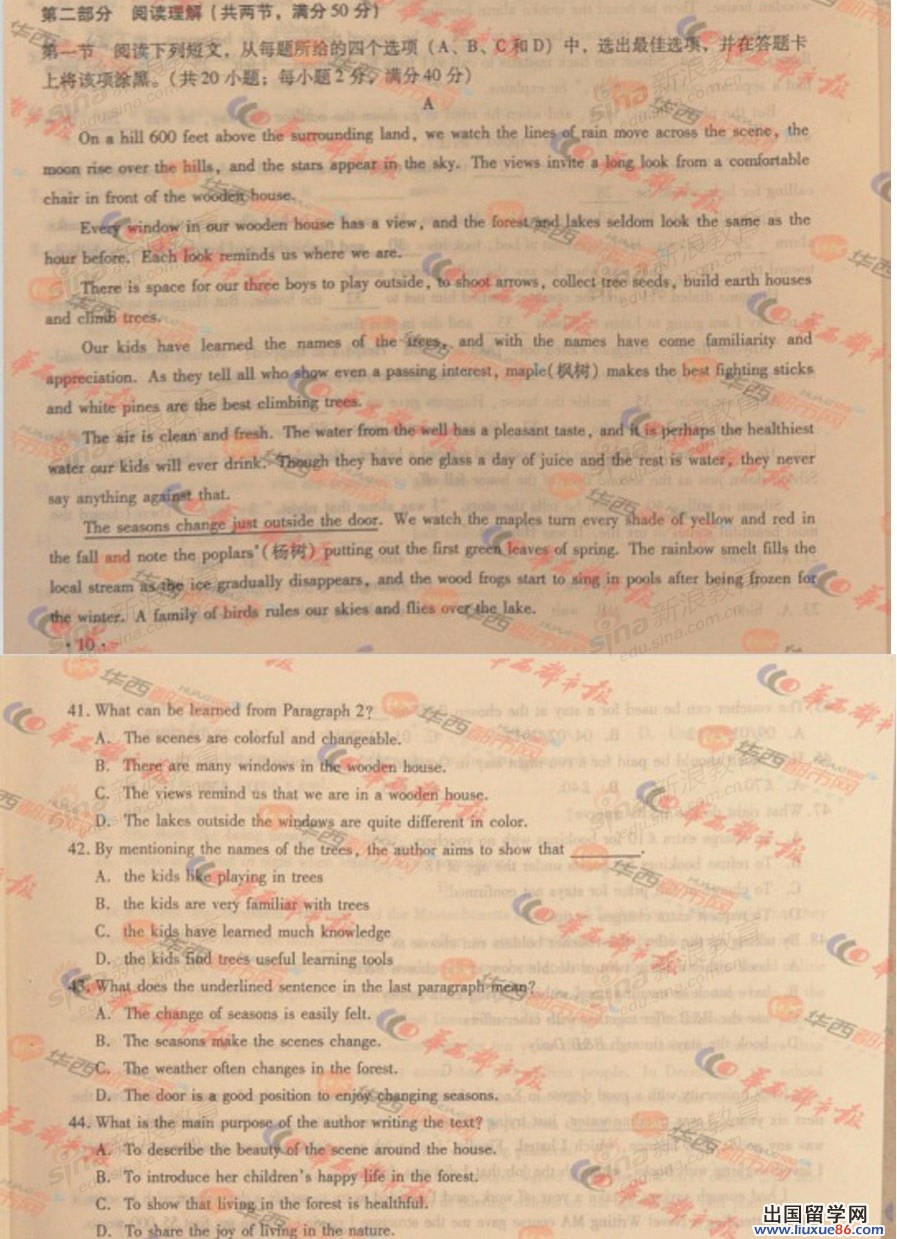 第二部分 阅读理解(共两节，满分50分)
第一节 阅读下列短文，从每题所给的四个选项(A、B、C和D)中，选出最佳选项，并在答题卡
上将该项涂黑。(共20小题；每小题2分，满分40分)
A
On a hill 600 feet above the surrounding land, we watch the lines of rain move across the scene, the
moon rise over the hills, and the stars appear in the sky. The views invite a long look from a comfortable
chair in front of the wooden house.
Every window in our wooden house has a view, and the forest and lakes seldom look the same as the
hour before. Each look reminds us where we are.
There is space for our three boys to play outside, to shoot arrows, collect tree seeds, build earth houses
and climb trees.
Our kids have learned the names of the trees, and with the names have come familiarity and
appreciation. As they tell all who show even a passing interest, maple(枫树) makes the best fighting sticks
and white pines are the best climbing trees.
The air is clean and fresh. The water from the well has a pleasant taste, and it is perhaps the healthiest
water our kids will ever drink. Though they have one glass a day of juice and the rest is water, they never
say anything against that.
The seasons change just outside the door. We watch the maples turn every shade of yellow and red in
the fall and note the poplars'(杨树) putting out the first green leaves of spring. The rainbow smelt fills the
local stream as the ice gradually disappears, and the wood frogs start to sing in pools after being frozen for
the winter. A family of birds rules our skies and flies over the lake.
· 10 ·
41. What can be learned from Paragraph 2?
A. The scenes are colorful and changeable.
B. There are many windows in the wooden house.
C. The views remind us that we are in a wooden house.
D. The lakes outside the windows are quite different in color.
42. By mentioning the names of the trees, the author aims to show that ______.
A. the kids like playing in trees
B. the kids are very familiar with trees
C. the kids have learned much knowledge
D. the kids find trees useful learning tools
43. What does the underlined sentence in the last paragraph mean?
A. The change of seasons is easily felt.
B. The seasons make the scenes change.
C. The weather often changes in the forest.
D. The door is a good position to enjoy changing seasons.
44. What is the main purpose of the author writing the text?
A. To describe the beauty of the scene around the house.
B. To introduce her children's happy life in the forest.
C. To show that living in the forest is healthful.
D. To share the joy of living in the nature.
出国留学网
www.liuxue86.com